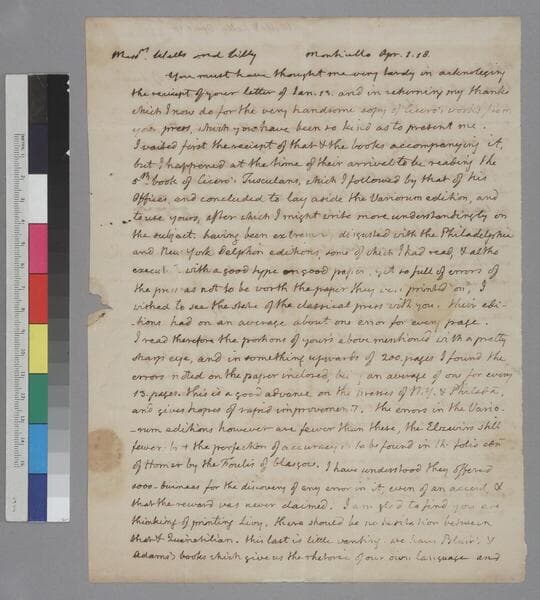 Messrs. Wells and Lilly Monticello Apr. 1. 18.
You must have thought me very tardy in acknoleging
the reciept of your letter of Jan. 13. and in returning my thanks
which I now do for the very handsome copy of Cicero's works from
your press, which you have been so kind as to present me.
I waited first the reciept of that & the books accompanying it,
but I happened at the time of their arrival to be reading the
5th book of Cicero's Tusculans, which I followed by that of his
Offices, and concluded to lay aside the Variorum edition, and
to use yours, after which I might write more understandingly on
the subject. having been extremely disgusted with the Philadelphia
and New York Delphin editions, some of which I had read, & altho
executed with a good type on good paper, yet so full of errors of
the press as not to be worth the paper they were printed on, I
wished to see the state of the classical press with you. their edi-
-tions had on an average about one error for every page.
I read therefore the portions of your's above mentioned with a pretty
sharp eye, and in something upwards of 200. pages I found the
errors noted on the paper inclosed, being an average of one for every
13. pages. this is a good advance on the presses of N.Y. & Philada,
and gives hopes of rapid improvement. the errors in the Vario-
-rum editions however are fewer than these, the Elzevirs still
fewer but the perfection of accuracy is to be found in the folio edn
of Homer by the Foulis of Glasgow. I have understood they offered
1000. guineas for the discovery of any error in it, even of an accent, &
that the reward was never claimed. I am glad to find you are
thinking of printing Livy. there should be no hesitation between
that & Quinctilian. this last is little wanting. we have Blair's &
Adams's books which give us the rhetoric of our own language and